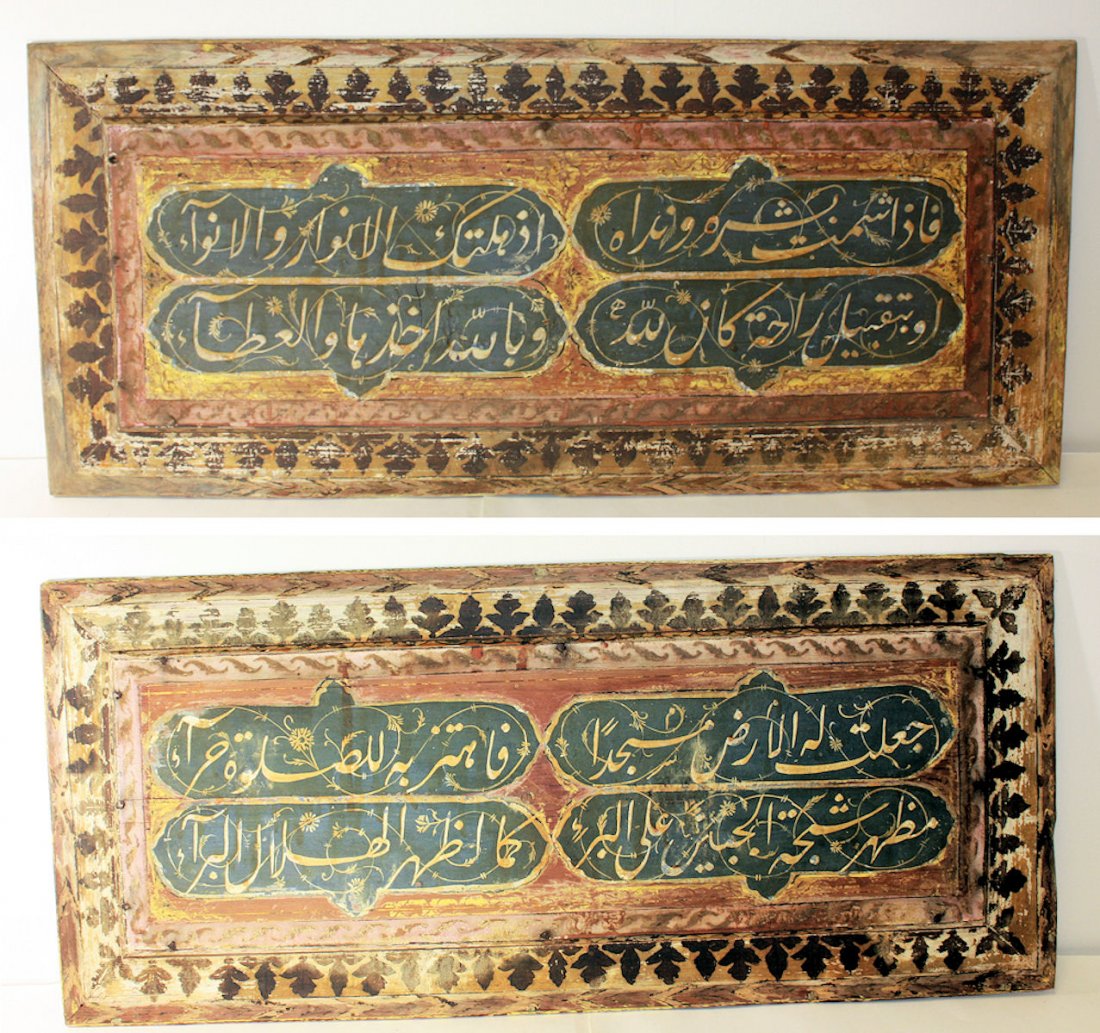 فاذا شمت بشره ونداه اذهلتك الانوار والانوآء
او بتقبيل راحة كان لله وبالله اخذها والعطآء
جعلت له الارض مسجدًا فاهتز به للصلوة حرآء
مظهر شجة الجبين على البرء كما اظهر الهلال البرآء